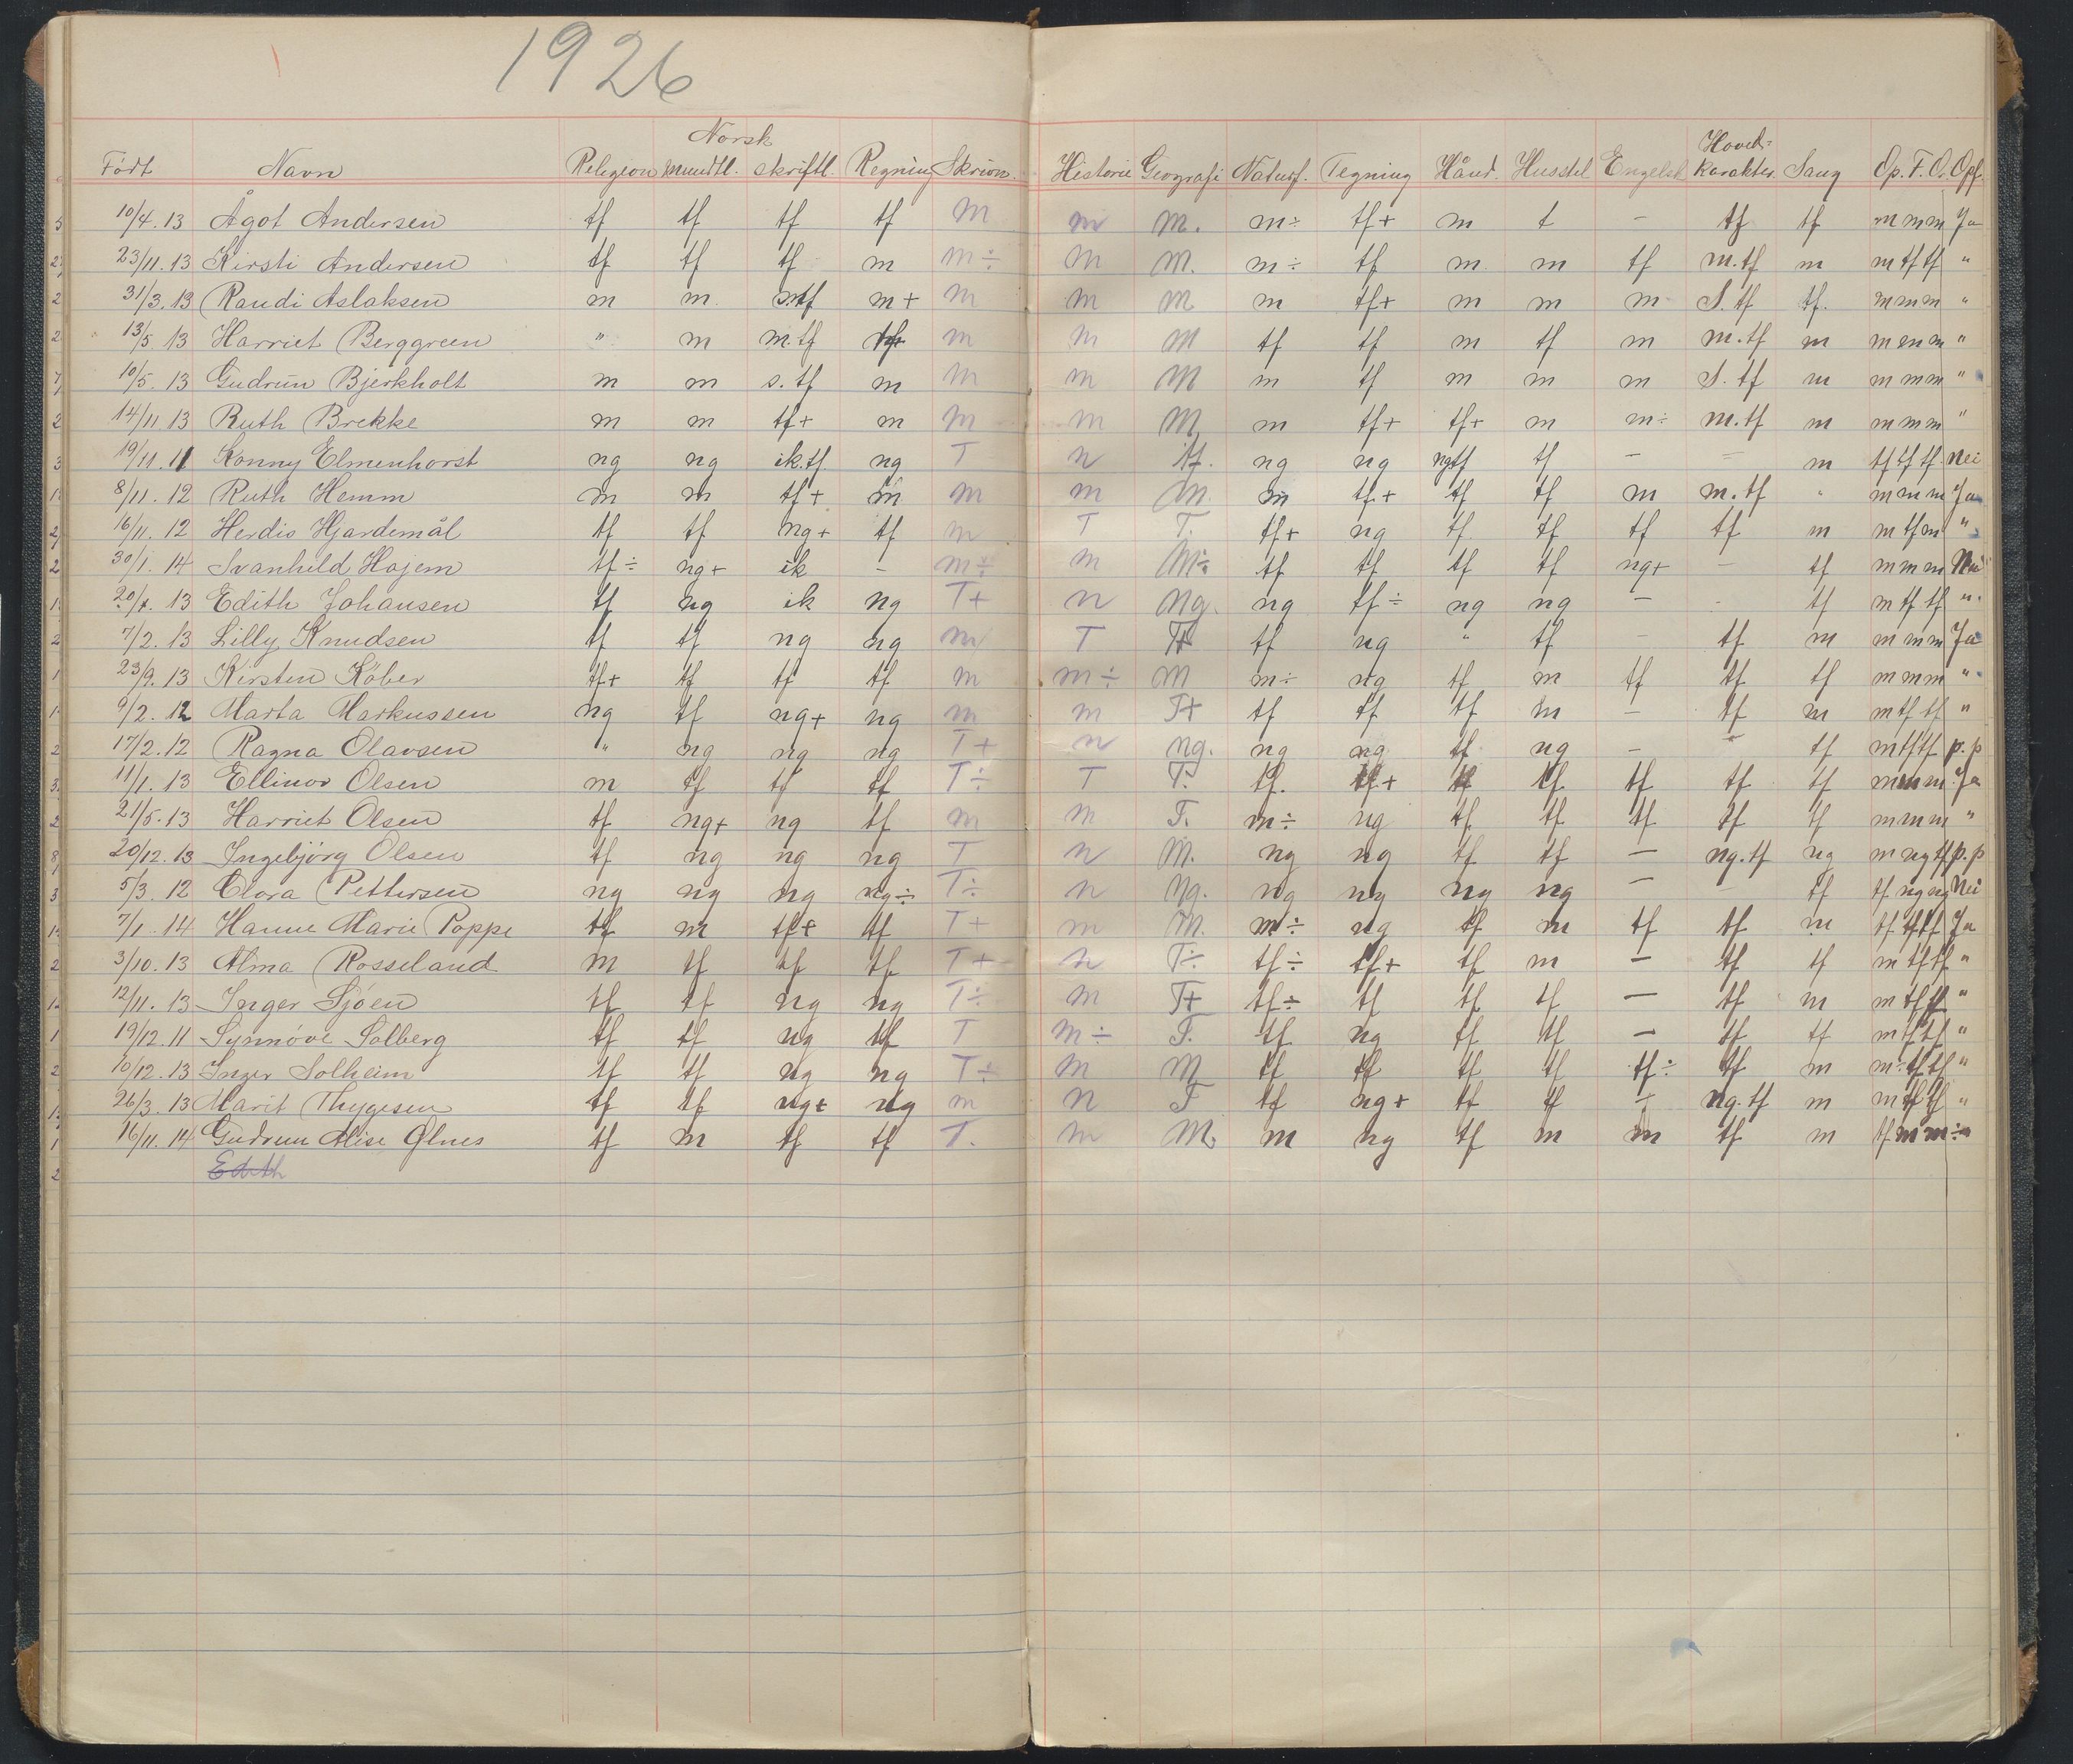 1926
Norsk Hoved-
Født Navn Religion mundtl. skriftl. Regning Skrivn. Historie Geografi Naturf. Tegning Hånd. Husstel Engelsk karakter Sang Op. F. O. Opf.
10/4. 13 Ågot Andersen tf tf tf tf M m M. m÷ tf+ m t – tf tf m m m Ja
23/11. 13 Kirsti Andersen tf tf tf m m÷ m M. m÷ tf m m tf m.tf m m tf tf "
31/3. 13 Randi Aslaksen m m s.tf m+ m m M m tf+ m m m S. tf tf. m m m "
13/5 13 Harriet Berggreen " m m.tf m m M tf tf m tf m m.tf m m m m "
10/5. 13 Gudrun Bjerkholt m m s. tf m m m M m tf m m m S. tf m m m m "
14/11. 13 Ruth Brekke m m tf+ m m m M m tf+ tf+ m m÷ m.tf m m m m "
19/11. 11 Konny Elmenhorst ng ng ik.tf. ng T n tf. ng ng ngtf tf – – m tf tf tf Nei
8/11. 12 Ruth Hemm m m tf+ m m m M. m tf+ tf tf m m.tf " m m m Ja
16/11. 12 Herdis Hjardemål tf tf ng+ tf m T T. tf+ ng tf tf tf tf m m tf m "
30/1. 14 Svanhild Hojem tf÷ ng+ ik – m÷ m M÷ tf tf tf tf ng+ – tf m m m Nei
20/4. 13 Edith Johansen tf ng ik ng T+ n ng. ng tf÷ ng ng – - tf m tf tf "
7/2. 13 Lilly Knudsen tf tf ng ng m T T+ tf ng " tf – tf m m m m Ja
23/9. 13 Kirsten Köber tf+ tf tf tf m m÷ M m÷ ng tf m tf tf tf m m m "
9/2. 12 Marta Markussen ng tf ng+ ng m m T+ tf tf tf m – tf m m tf tf "
17/2. 12 Ragna Olavsen " ng ng ng T+ n ng. ng ng tf ng – tf m tf tf p.p
11/1. 13 Ellinor Olsen m tf tf tf T÷ T T. tf. tf+ tf tf tf tf tf m m m Ja
21/5. 13 Harriet Olsen tf ng+ ng tf m m T. m÷ ng tf tf tf tf tf m m m "
20/12. 13 Ingebjörg Olsen tf ng ng ng T n M. ng ng tf tf – ng.tf ng m ng tf p.p
5/3. 12 Clara Pettersen ng ng ng ng÷ T÷ n ng. ng ng ng ng – tf tf ng ng Nei
7/1. 14 Hanne Marie Poppe tf m tf+ tf T+ m M. m÷ ng tf m tf tf m tf tf tf Ja
3/10. 13 Alma Rosseland m tf tf tf T+ n T÷ tf÷ tf+ tf m – tf tf m tf tf "
12/11. 13 Inger Sjöen tf tf ng ng T÷ m T+ tf÷ tf tf tf – tf m m tf tf "
19/12. 11 Synnöve Solberg tf tf ng tf T m÷ T. tf ng tf tf – tf tf m tf tf "
10/12. 13 Inger Solheim tf tf ng ng T÷ m M tf tf tf tf tf÷ tf m m÷ tf tf "
26/3. 13 Marit Thygesen tf tf ng+ ng m n T tf ng+ tf tf – ng.tf m m tf tf "
16/11. 14 Gudrun Alise Ølnes tf m tf tf T. m M. m ng tf m m tf m tf m m
Edith